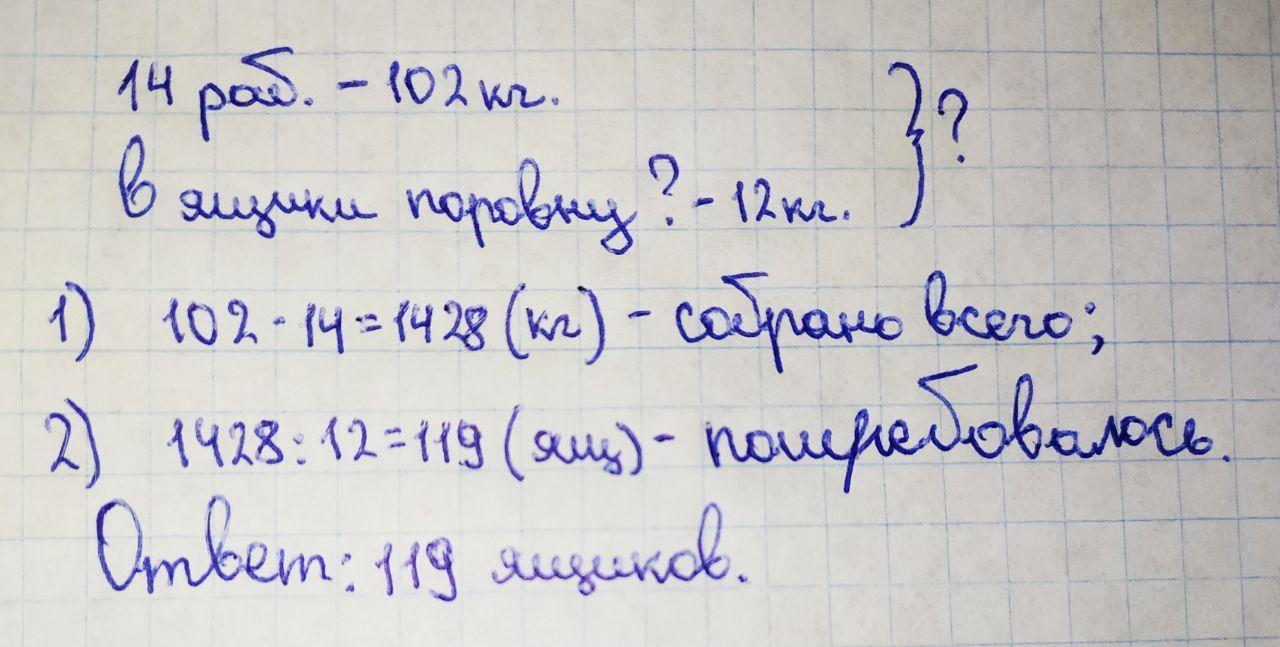 14 раб. - 102 кг.
} ?
в ящики поровну ? - 12 кг.
1) 102 · 14 = 1428 (кг) - собрано всего;
2) 1428 : 12 = 119 (ящ) - потребовалось.
Ответ: 119 ящиков.